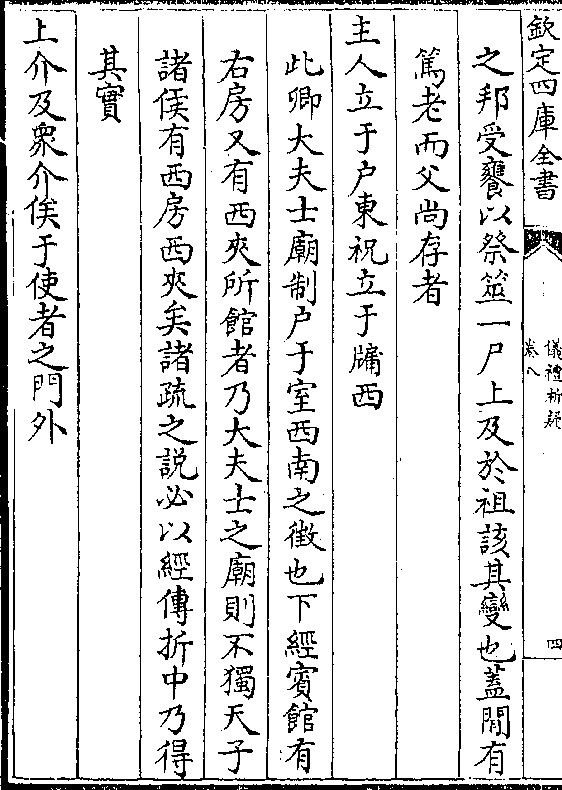 欽定四庫全書
儀禮析疑
卷八
四
之邦受饔以祭筮一尸上及於祖該其變也蓋閒有
篤老而父尚存者
主人立于户東祝立于牖西
此卿大夫士廟制户于室西南之徴也下經賓館有
右房又有西夾所館者乃大夫士之廟則不獨天子
諸侯有西房西夾矣諸疏之説必以經傳折中乃得
其實
上介及衆介俟于使者之門外